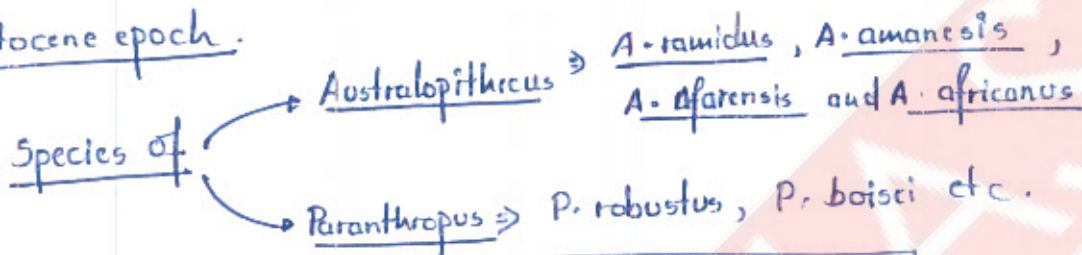 tocene epoch.
Australopithecus ⇒ A. ramidus, A. amanesis,
A. Afarensis and A. africanus
Species of
Paranthropus ⇒ P. robustus, P. boisei etc.